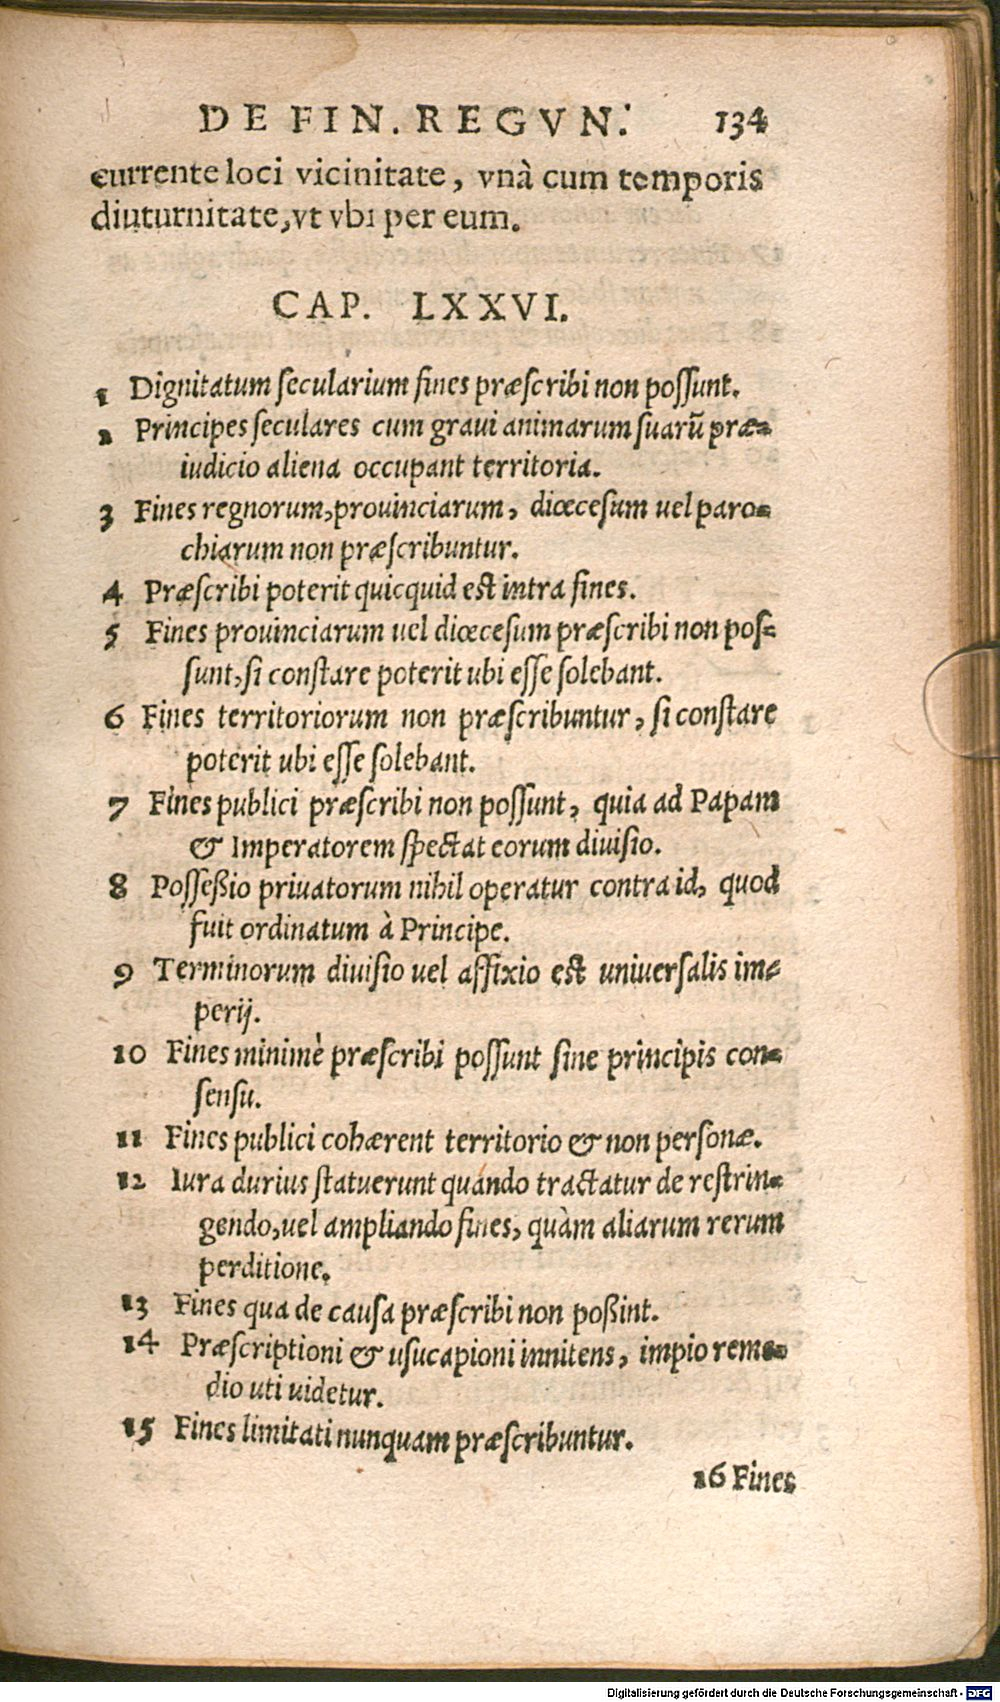 DE FIN. REGVN. 134
currente loci vicinitate, vnà cum temporis
diuturnitate, vt vbi per eum.
CAP. LXXVI.
1 Dignitatum secularium fines præscribi non possunt.
2 Principes seculares cum graui animarum suarũ præ-
iudicio aliena occupant territoria.
3 Fines regnorum, prouinciarum, diœcesum uel paro-
chiarum non præscribuntur.
4 Præscribi poterit quicquid est intra fines.
5 Fines prouinciarum uel diœcesum præscribi non pos-
sunt, si constare poterit ubi esse solebant.
6 Fines territoriorum non præscribuntur, si constare
poterit ubi esse solebant.
7 Fines publici præscribi non possunt, quia ad Papam
& Imperatorem spectat eorum diuisio.
8 Posseßio priuatorum nihil operatur contra id, quod
fuit ordinatum à Principe.
9 Terminorum diuisio uel affixio est uniuersalis im-
perij.
10 Fines minimè præscribi possunt sine principis con-
sensu.
11 Fines publici cohærent territorio & non personæ.
12 Iura durius statuerunt quando tractatur de restrin-
gendo, uel ampliando fines, quàm aliarum rerum
perditione.
13 Fines qua de causa præscribi non poßint.
14 Præscriptioni & usucapioni innitens, impio reme-
dio uti uidetur.
15 Fines limitati nunquam præscribuntur.
16 Fines
Digitalisierung gefördert durch die Deutsche Forschungsgemeinschaft - DFG